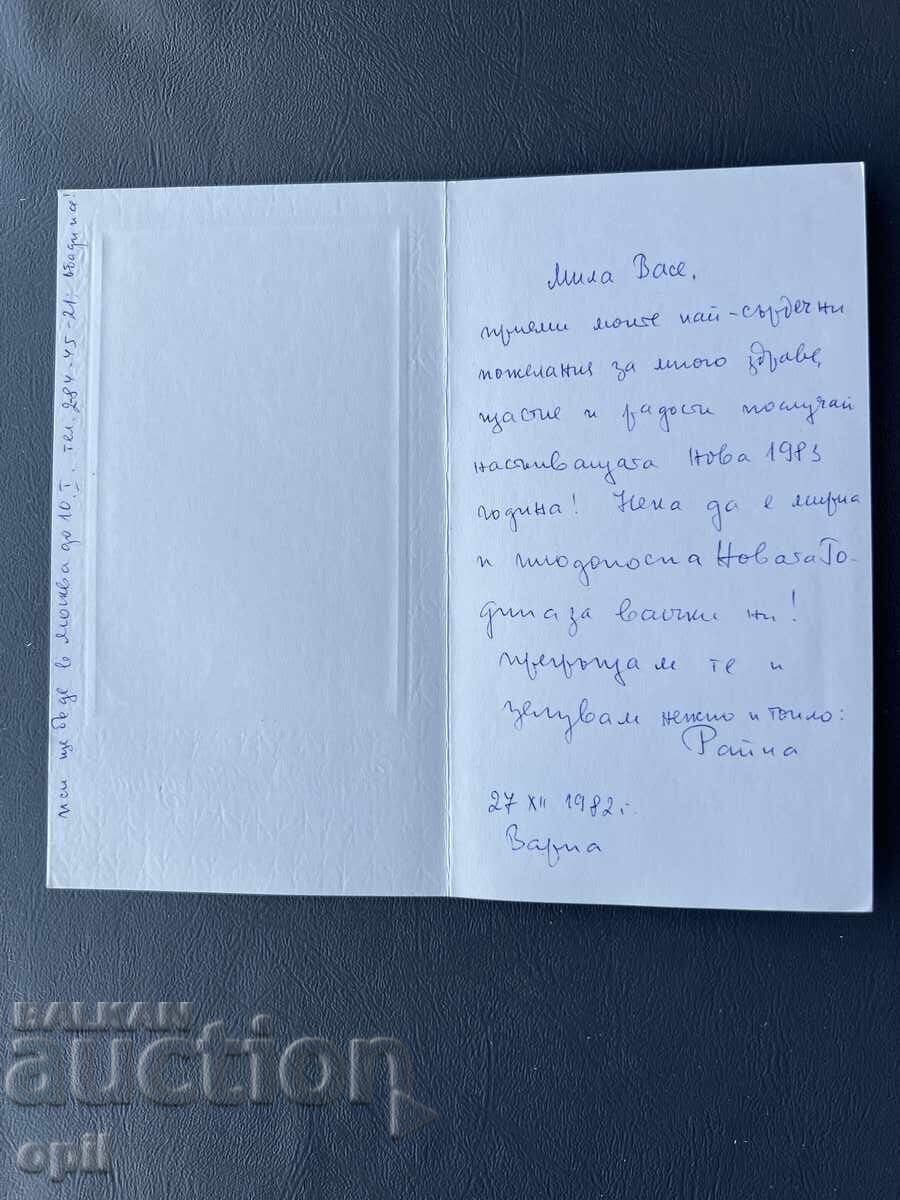 Мила Васе,
приеми моите най-сърдечни
пожелания за много здраве,
щастие и радости по случай
настъпващата Нова 1983
година! Нека да е мирна
и плодоносна Новата Го-
дина за всички ни!
Прегръщам те и
целувам нежно и топло:
Райна
27 XII 1982 г.
Варна
ще бъде в Москва до 10.I. тел. 284-45-21. Обади се!
BALKAN
auction
opil